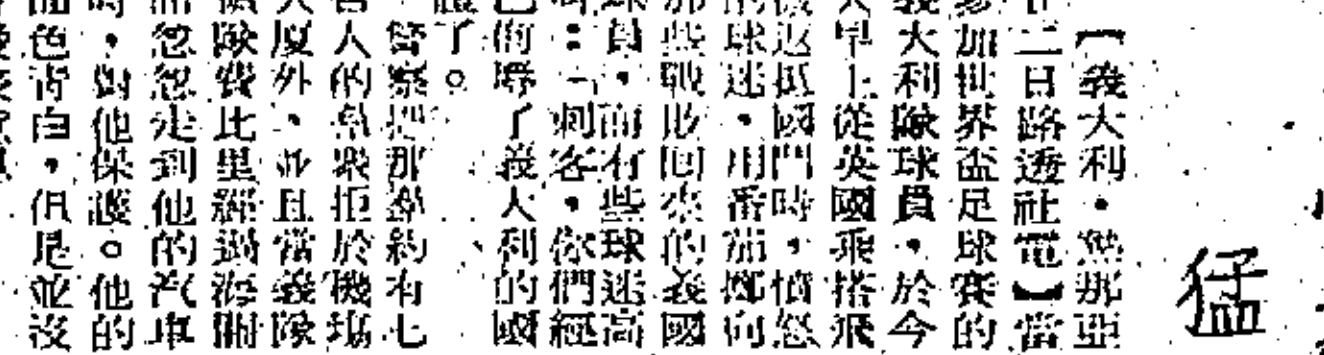 猛
【義大利•熱那亞
廿二日路透社電】當
參加世界盃足球賽的
義大利隊球員,於今
天早上從英國乘搭飛
返抵國門時,憤怒
的球迷,用番茄擲向
那些戰敗回來的義國
球員,而有些球迷高
叫:「刺客,你們經
已侮辱了義大利的國
體了。
警察把那羣約有七
百人的羣眾拒於機場
大廈外、並且當義隊
領隊費比里經過海關
忽忽走到他的汽車
時,對他保護。他的
面色青白,但是並沒